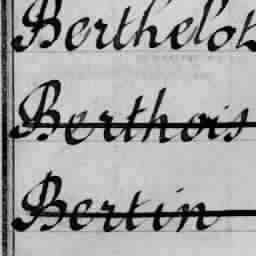 Berthelot
Berthois
Bertin